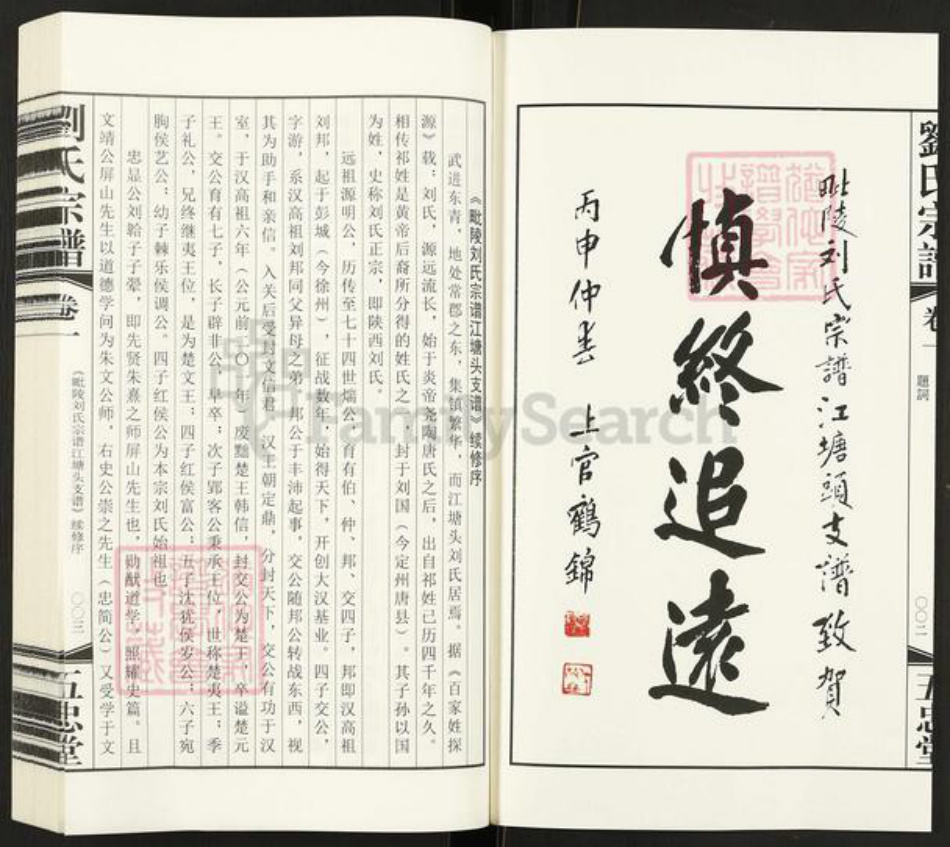 劉氏宗譜 卷一 題詞 〇〇二 五忠堂
毗陵刘氏宗譜江塘頭支譜致賀
慎終追遠
丙申仲春 上官鶴錦
《毗陵刘氏宗谱江塘头支谱》续修序
武进东青，地处常郡之东，集镇繁华，而江塘头刘氏居焉。据《百家姓探
源》载：刘氏，源远流长，始于炎帝尧陶唐氏之后，出自祁姓已历四千年之久。
相传祁姓是黄帝后裔所分得的姓氏之一，封于刘国（今定州唐县）。其子孙以国
为姓，史称刘氏正宗，即陕西刘氏。
远祖源明公，历传至七十四世煓公，育有伯、仲、邦、交四子，邦即汉高祖
刘邦，起于彭城（今徐州），征战数年，始得天下，开创大汉基业。四子交公，
字游，系汉高祖刘邦同父异母之弟，邦公于丰沛起事，交公随邦公转战东西，视
其为助手和亲信。入关后受封文信君，汉王朝定鼎，分封天下，交公有功于汉
室，于汉高祖六年（公元前二〇一年）废黜楚王韩信，封交公为楚王，卒谥楚元
王。交公育有七子，长子辟非公，早卒；次子郢客公秉承王位，世称楚夷王；季
子礼公，兄终继夷王位，是为楚文王；四子红侯富公；五子沈犹侯岁公；六子宛
朐侯艺公；幼子棘乐侯调公。四子红侯公为本宗刘氏始祖也。
忠显公刘韐子子翚，即先贤朱熹之师屏山先生也，勋猷道学，照耀史篇。且
文靖公屏山先生以道德学问为朱文公师，右史公崇之先生（忠简公）又受学于文
《毗陵刘氏宗谱江塘头支谱》续修序
〇〇三
劉氏宗譜 卷一 五忠堂
FamilySearch